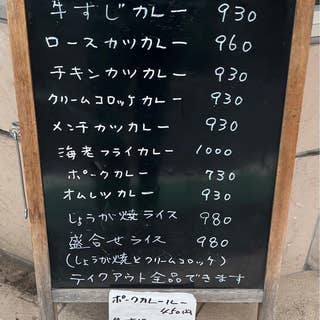 牛すじカレー 930
ロースカツカレー 960
チキンカツカレー 930
クリームコロッケカレー 930
メンチカツカレー 930
海老フライカレー 1000
ポークカレー 730
オムレツカレー 930
じょうが焼ライス 980
盛合せライス 980
(しょうが焼とクリームコロッケ)
テイクアウト全品できます
ポークカレールー
450円